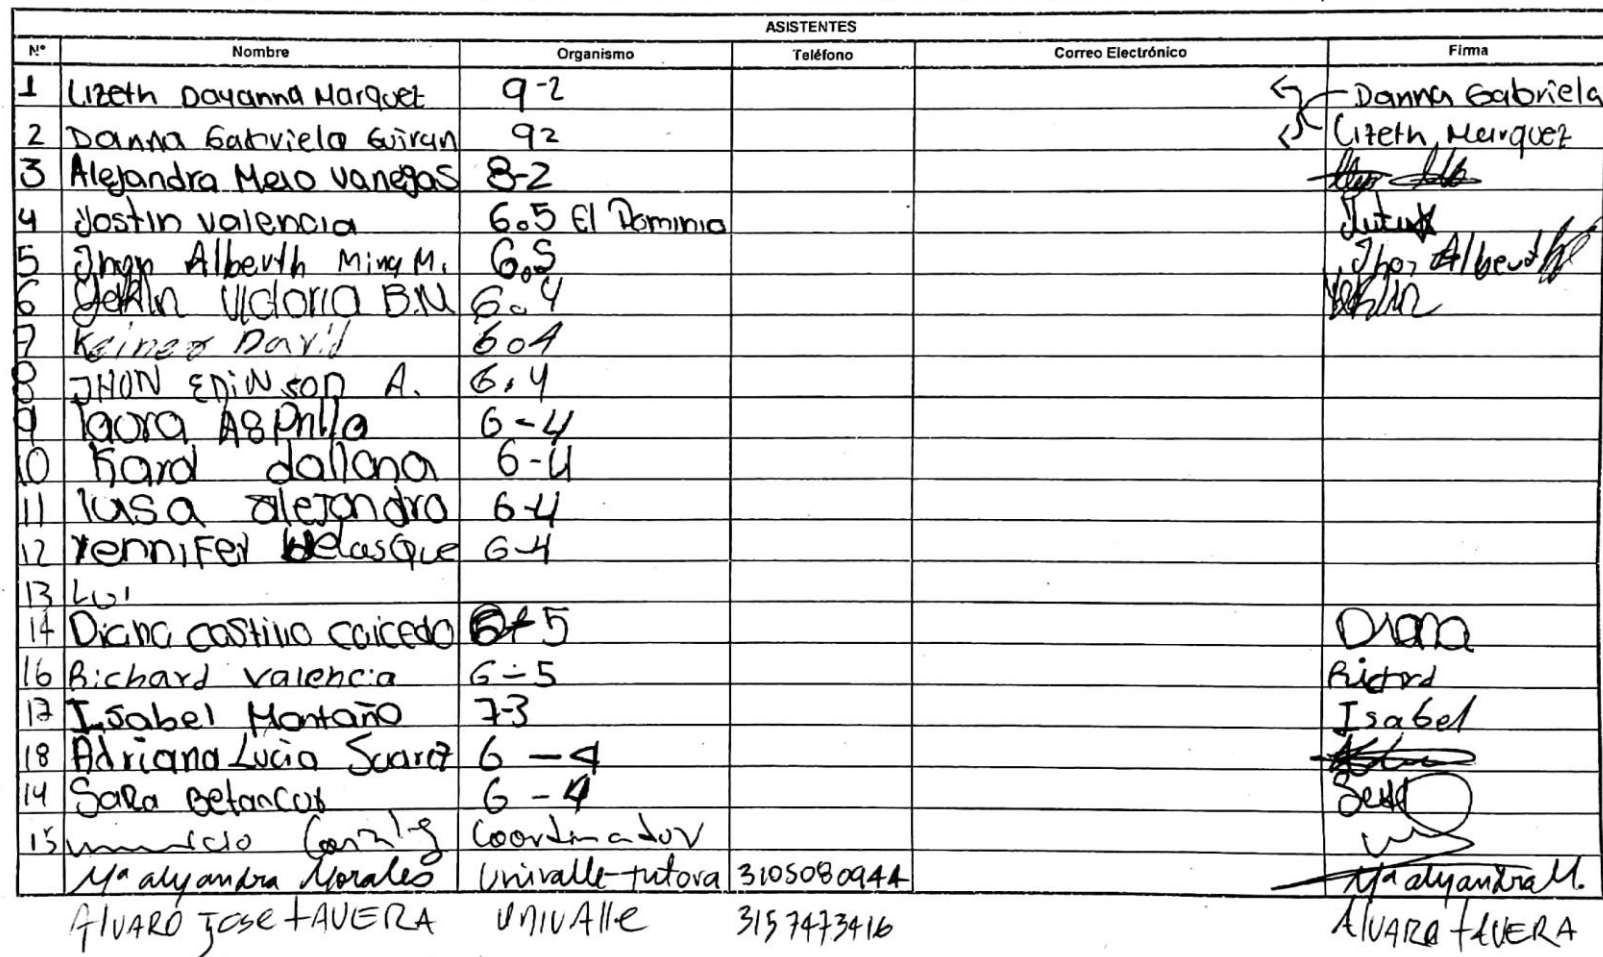 ASISTENTES
N° Nombre Organismo Teléfono Correo Electrónico Firma
1 Lizeth Dayanna Marquez 9-2 Danna Gabriela
2 Danna Gabriela Guiran 92 Lizeth Marquez
3 Alejandra Melo Vanegas 8-2
4 Jostin valencia 6.5 El Dominio
5 Jhon Alberth Mina M. 6.5 Jhon Alberth
6 Yerlin Victoria B.N 6.4 Yerlin
7 Keiner David 604
8 JHON EDINSON A. 6.4
9 laura ASPrilla 6-4
10 Karol dallana 6-4
11 luisa alejandra 6-4
12 Yennifer velasque 6-4
13 Lui
14 Diana castillo caicedo 6-5 Diana
16 Richard valencia 6-5 Richard
17 Isabel Montaño 7-3 Isabel
18 Adriana Lucia Suarez 6-4
14 Sara Betancur 6-4
15 Coordinador
Ma alejandra Morales Univalle-tutora 3105080944 Ma alejandra M.
Alvaro Jose TAVERA UNIVAlle 3157473416 AlVARO TAVERA